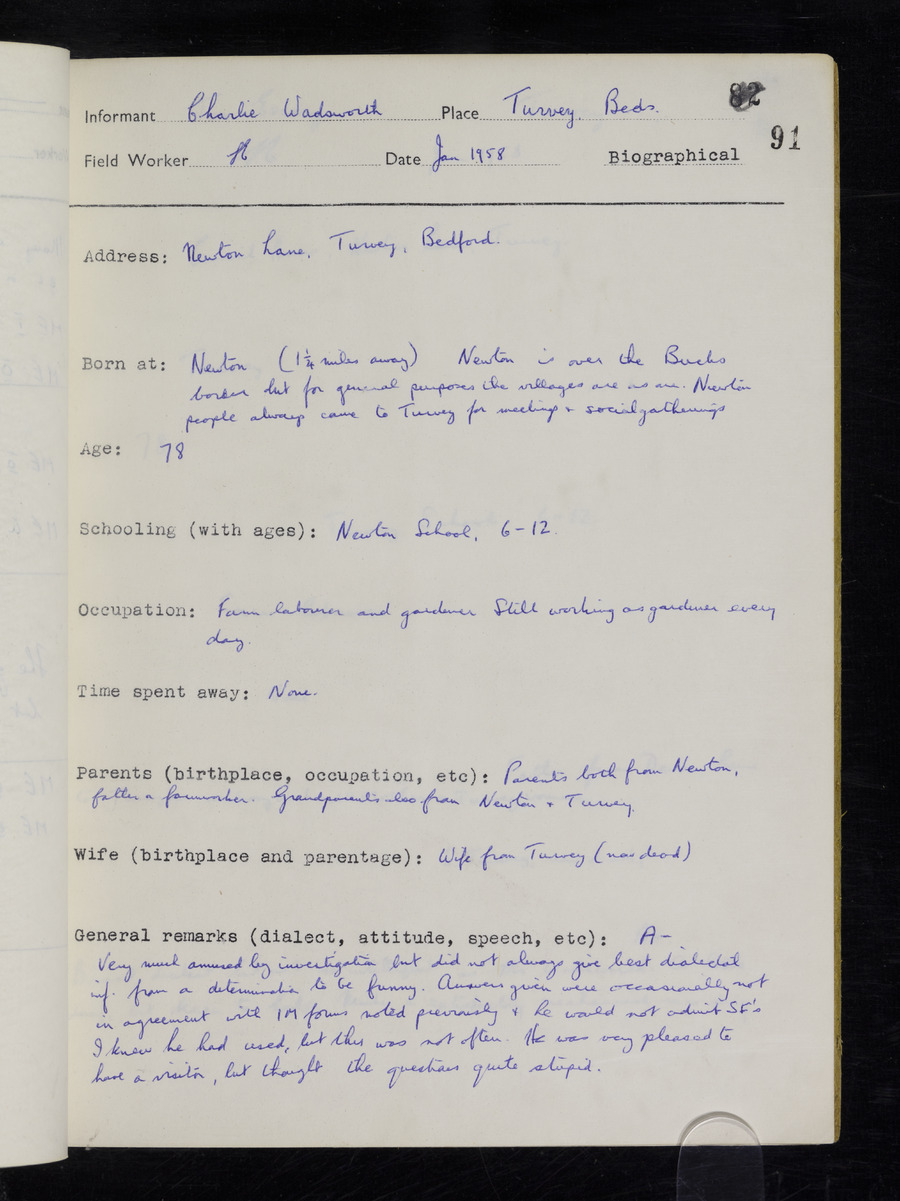 82
Informant Charlie Wadsworth Place Turvey, Beds.
91
Field Worker H Date Jan 1958 Biographical
Address: Newton Lane, Turvey, Bedford.
Born at: Newton (1¼ miles away) Newton is over the Bucks
border but for general purposes the villages are as one. Newton
people always came to Turvey for meetings + social gatherings
Age: 78
Schooling (with ages): Newton School, 6-12.
Occupation: Farm labourer and gardener Still working as gardener every
day.
Time spent away: None.
Parents (birthplace, occupation, etc): Parents both from Newton,
father a farmworker. Grandparents also from Newton + Turvey.
Wife (birthplace and parentage): Wife from Turvey (now dead)
General remarks (dialect, attitude, speech, etc): A-
Very much amused by investigation but did not always give best dialectal
inf. from a determination to be funny. Answers given were occasionally not
in agreement with IM forms noted previously + he would not admit SF's
I knew he had used, but this was not often. He was very pleased to
have a visitor, but thought the questions quite stupid.